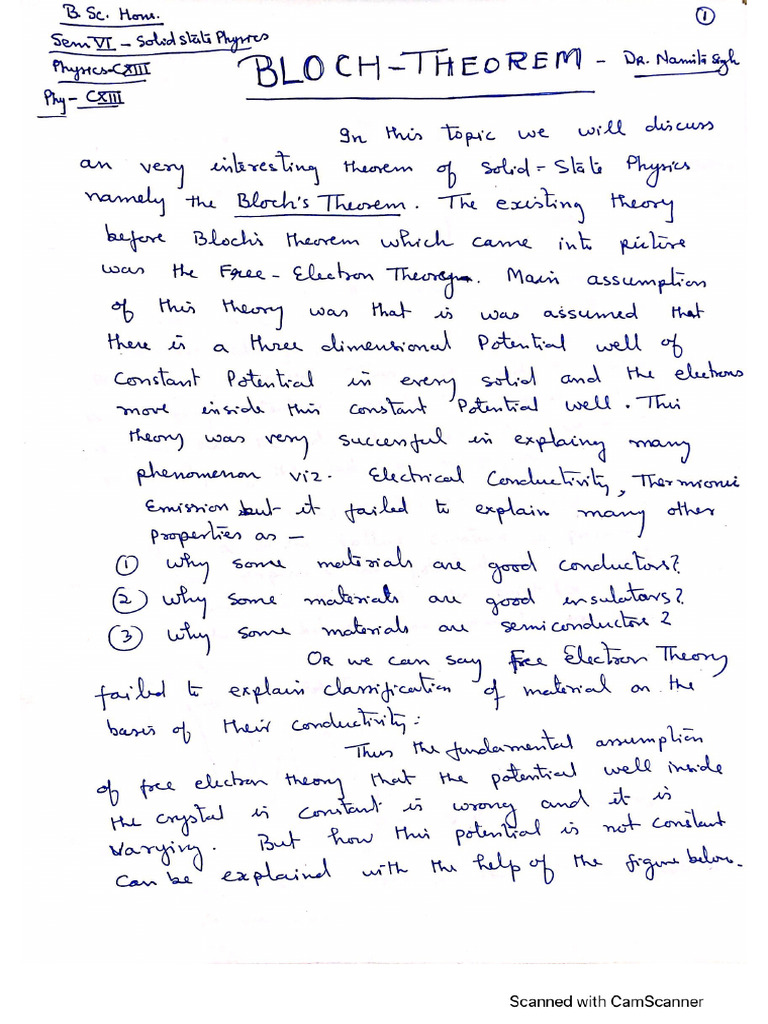 B. Sc. Hons.
①
Sem VI - Solid State Physics
Physics-CXIII
BLOCH-THEOREM - DR. Namita Singh
Phy- CXIII
In this topic we will discuss
an very interesting theorem of Solid-State Physics
namely the Bloch's Theorem. The existing theory
before Bloch's theorem which came into picture
was the Free-Electron Theory. Main assumption
of this theory was that is was assumed that
there is a three dimensional Potential well of
Constant Potential in every solid and the electrons
move inside this constant Potential well. This
theory was very successful in explaing many
phenomenon viz. Electrical Conductivity, Thermionic
Emission but it failed to explain many other
Properties as -
① Why some materials are good conductors?
② Why some materials are good insulators?
③ Why some materials are semiconductors?
OR we can say Free Electron Theory
failed to explain classification of material on the
basis of their conductivity.
Thus the fundamental assumption
of free electron theory that the potential well inside
the crystal is constant is wrong and it is
Varying. But how this potential is not constant
Can be explained with the help of the figure below.
Scanned with CamScanner